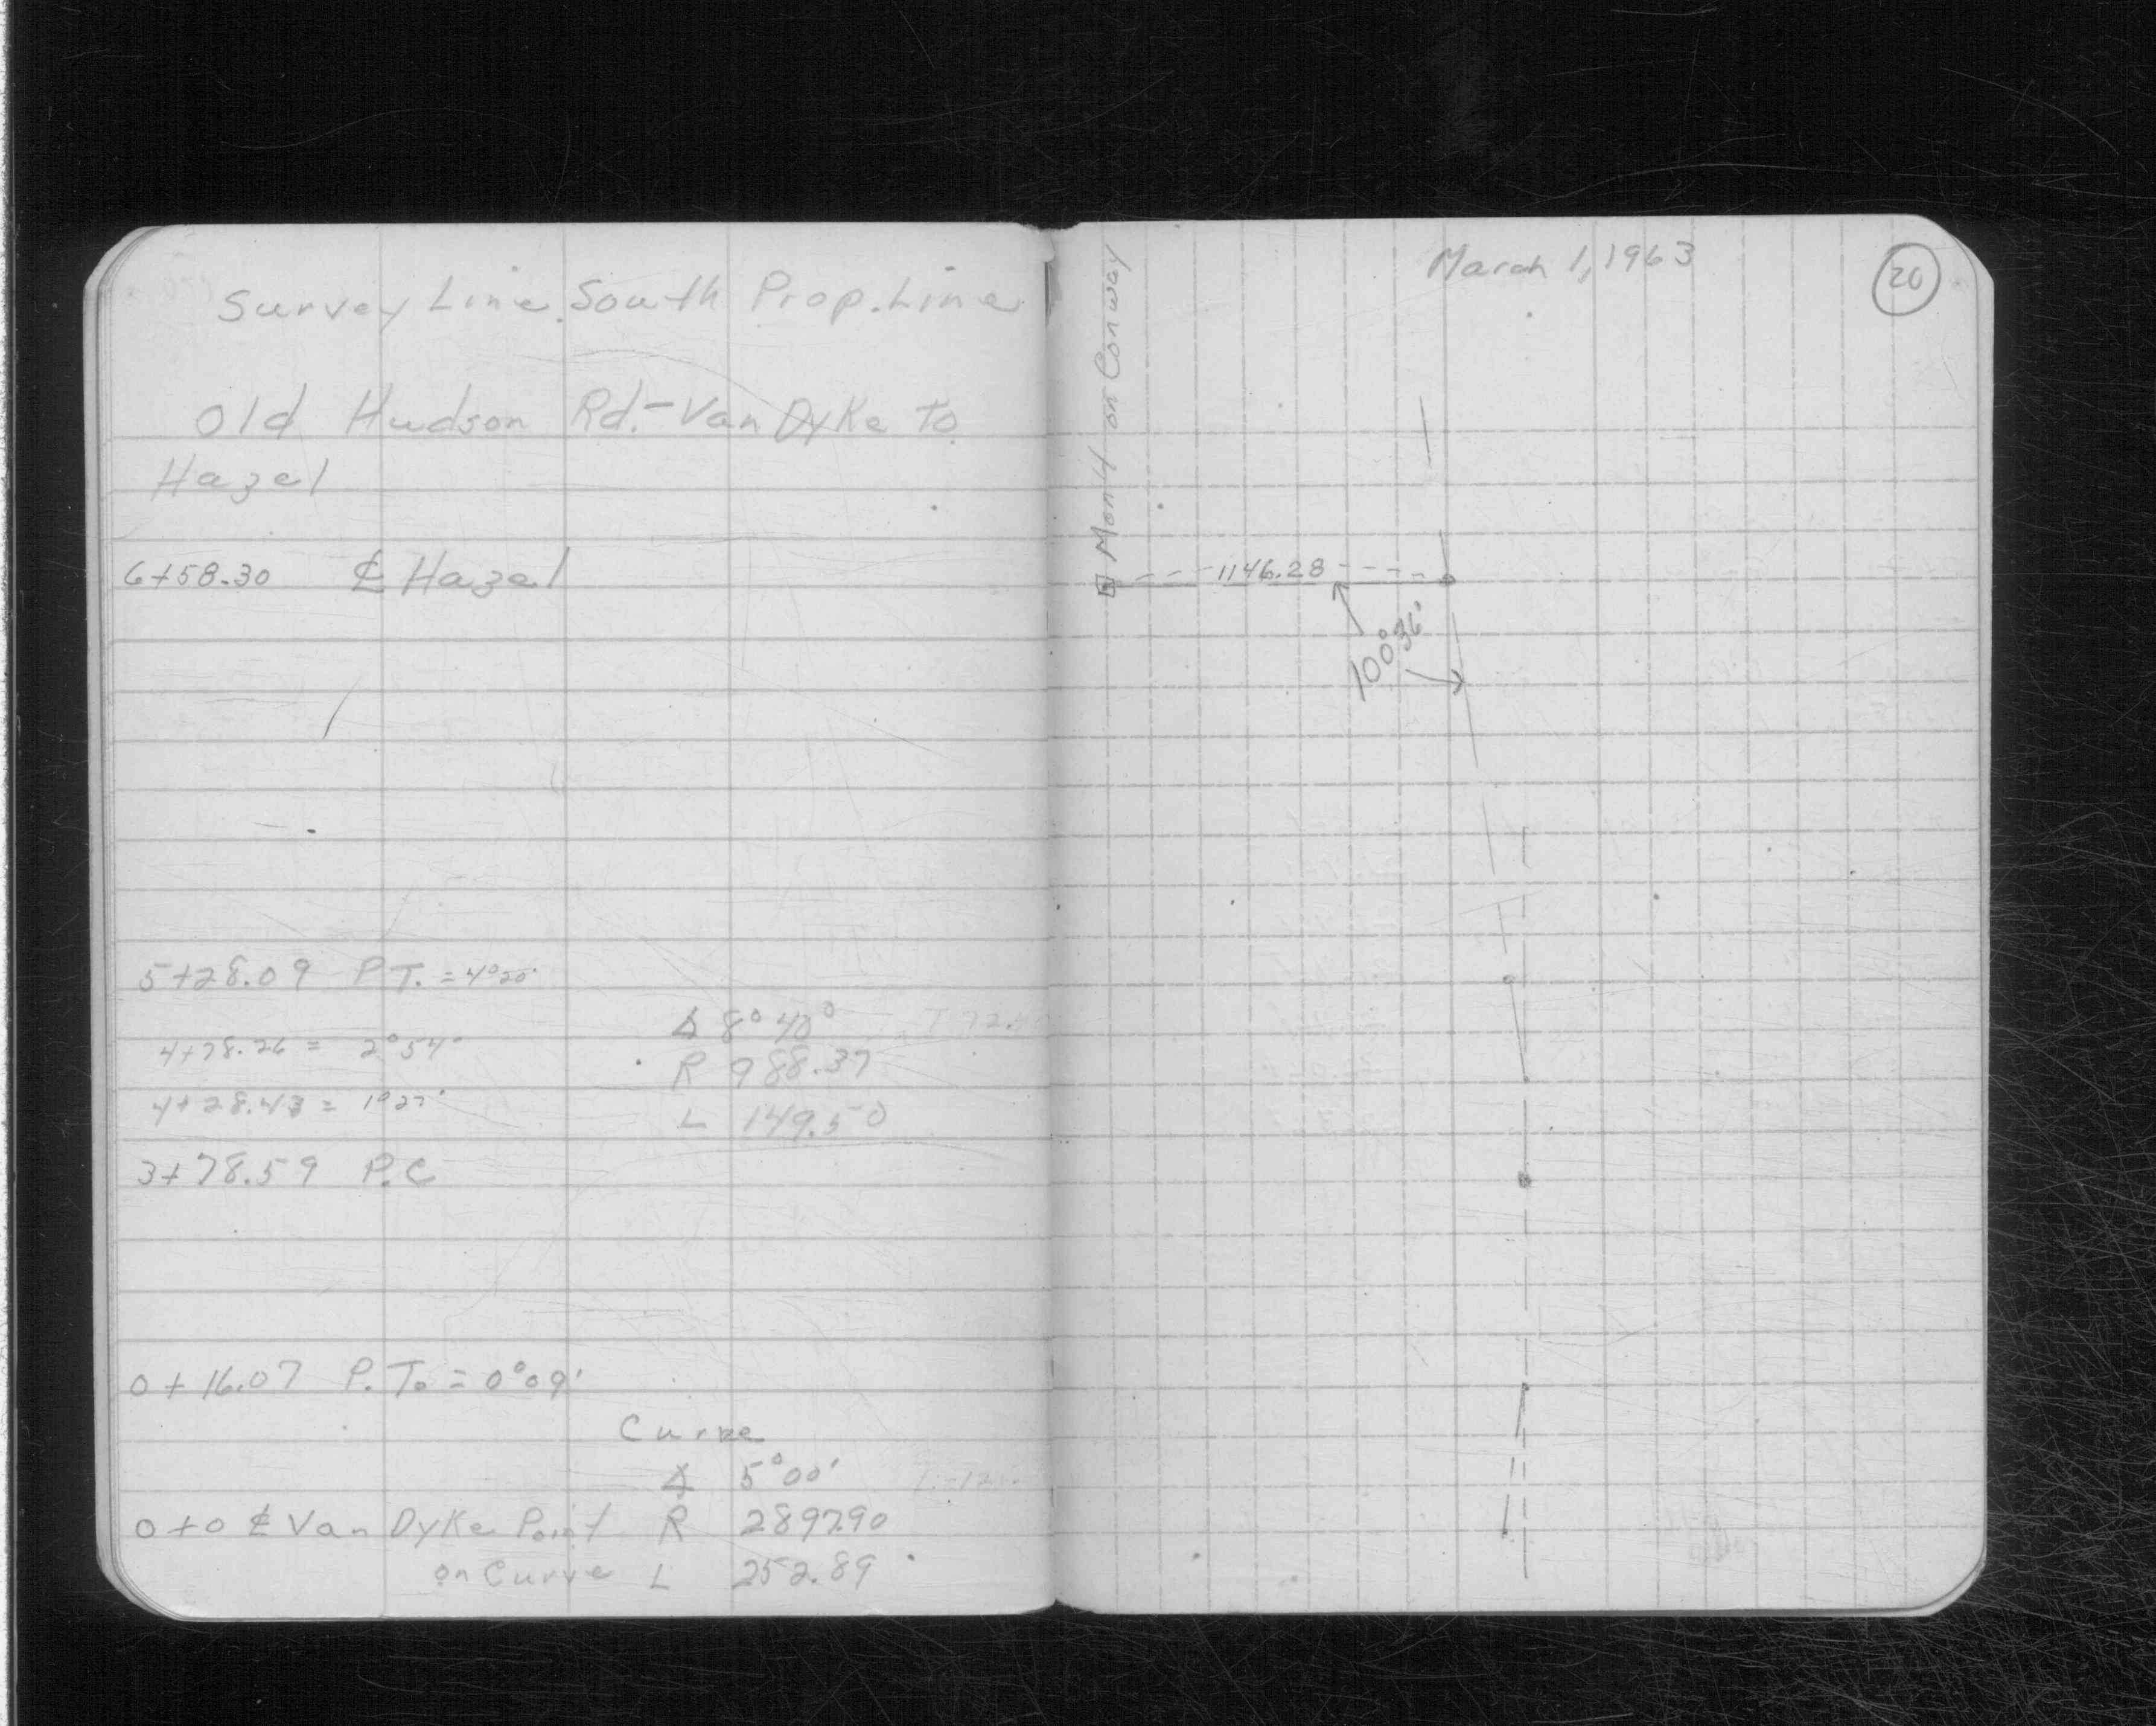 Survey Line. South Prop. Line
Old Hudson Rd. - Van Dyke To
Hazel
6+58.30 ℄ Hazel
5+28.09 P.T. = 4°20'
Δ 8°40°
4+78.26 = 2°54'
R 988.37
4+28.43 = 1°27'
L 149.50
3+78.59 P.C
0+16.07 P.T. = 0°09'
Curve
Δ 5°00'
0+0 ℄ Van Dyke Point R 2897.90
on Curve L 252.89
March 1, 1963
20
on Conway
1146.28
100°36'